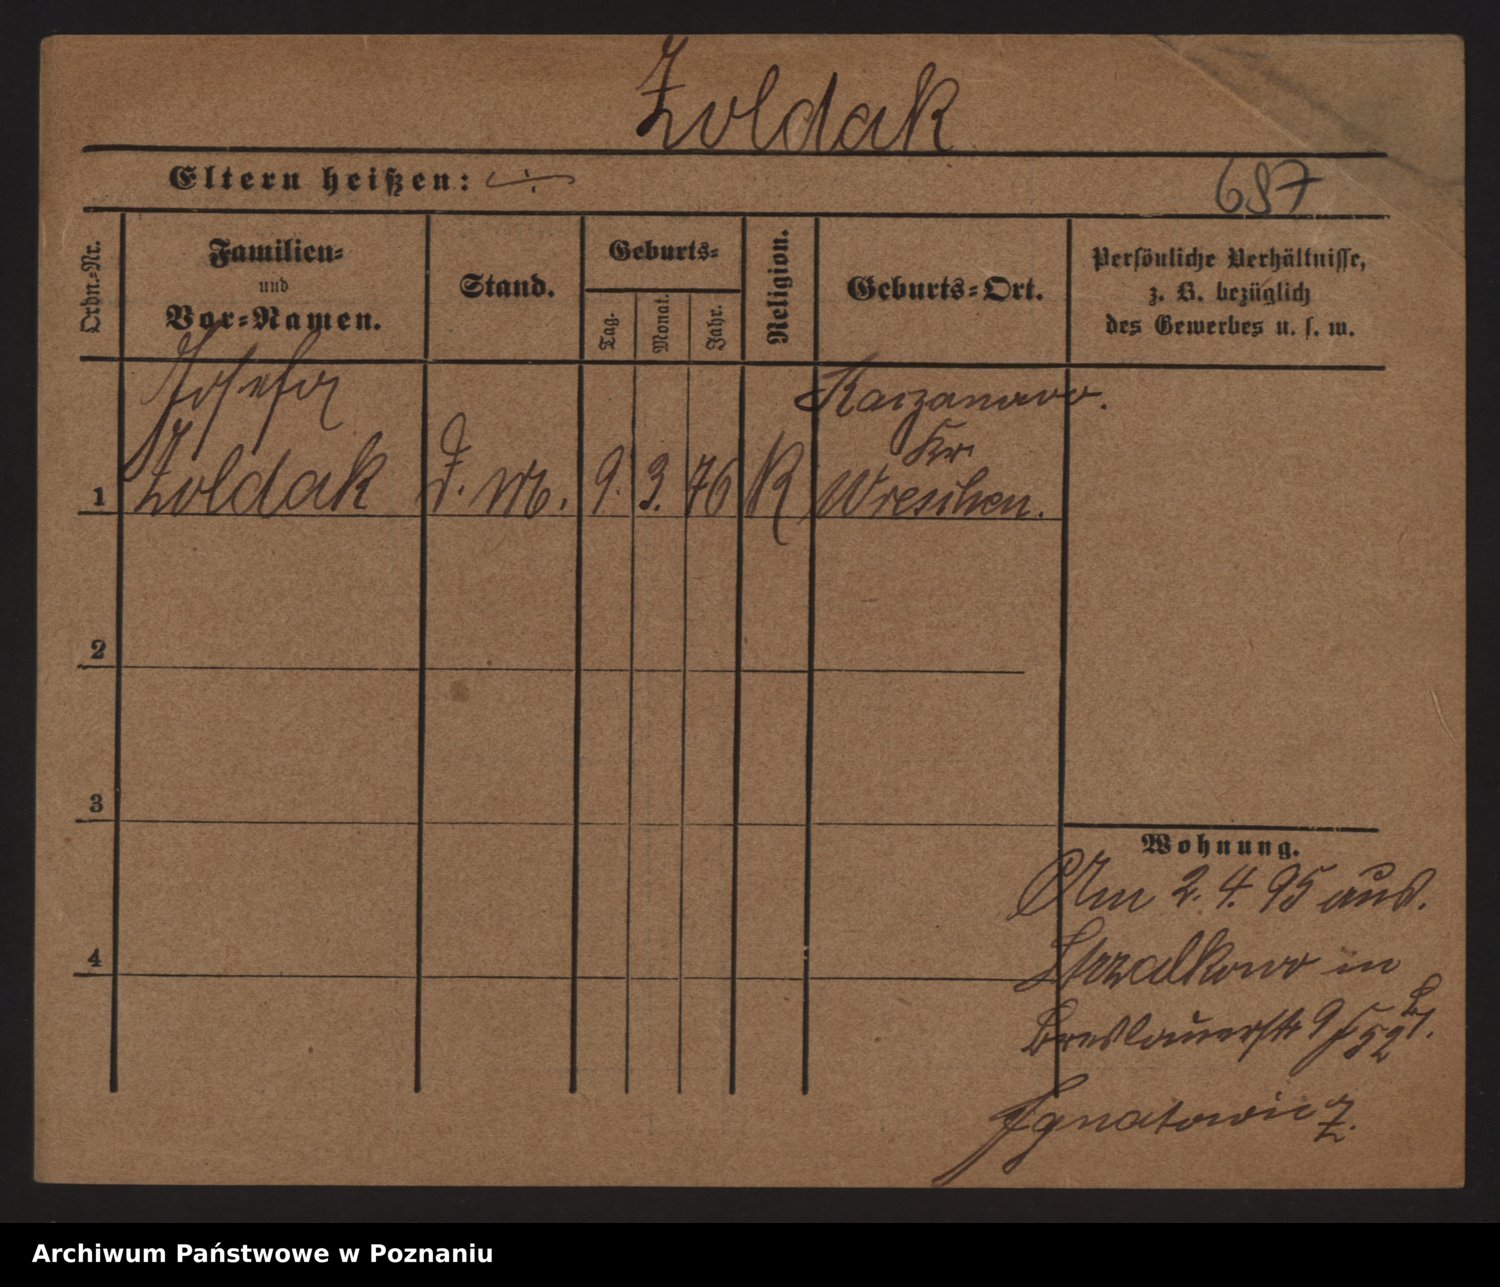 Zoldak
Eltern heißen: ÷
687
Ordn.=Nr.
Familien=
und
Vor=Namen.
Stand.
Geburts=
Tag.
Monat.
Jahr.
Religion.
Geburts=Ort.
Persönliche Verhältnisse,
z. B. bezüglich
des Gewerbes u. s. w.
1
Josefa
Zoldak
D. M.
9.
3.
76
K
Kaczanowo.
Kr.
Wreschen.
2
3
4
Wohnung.
Am 2. 4. 95 aus.
Strzalkowo in
Breslauerstr 9
Ignatowicz.
Archiwum Państwowe w Poznaniu